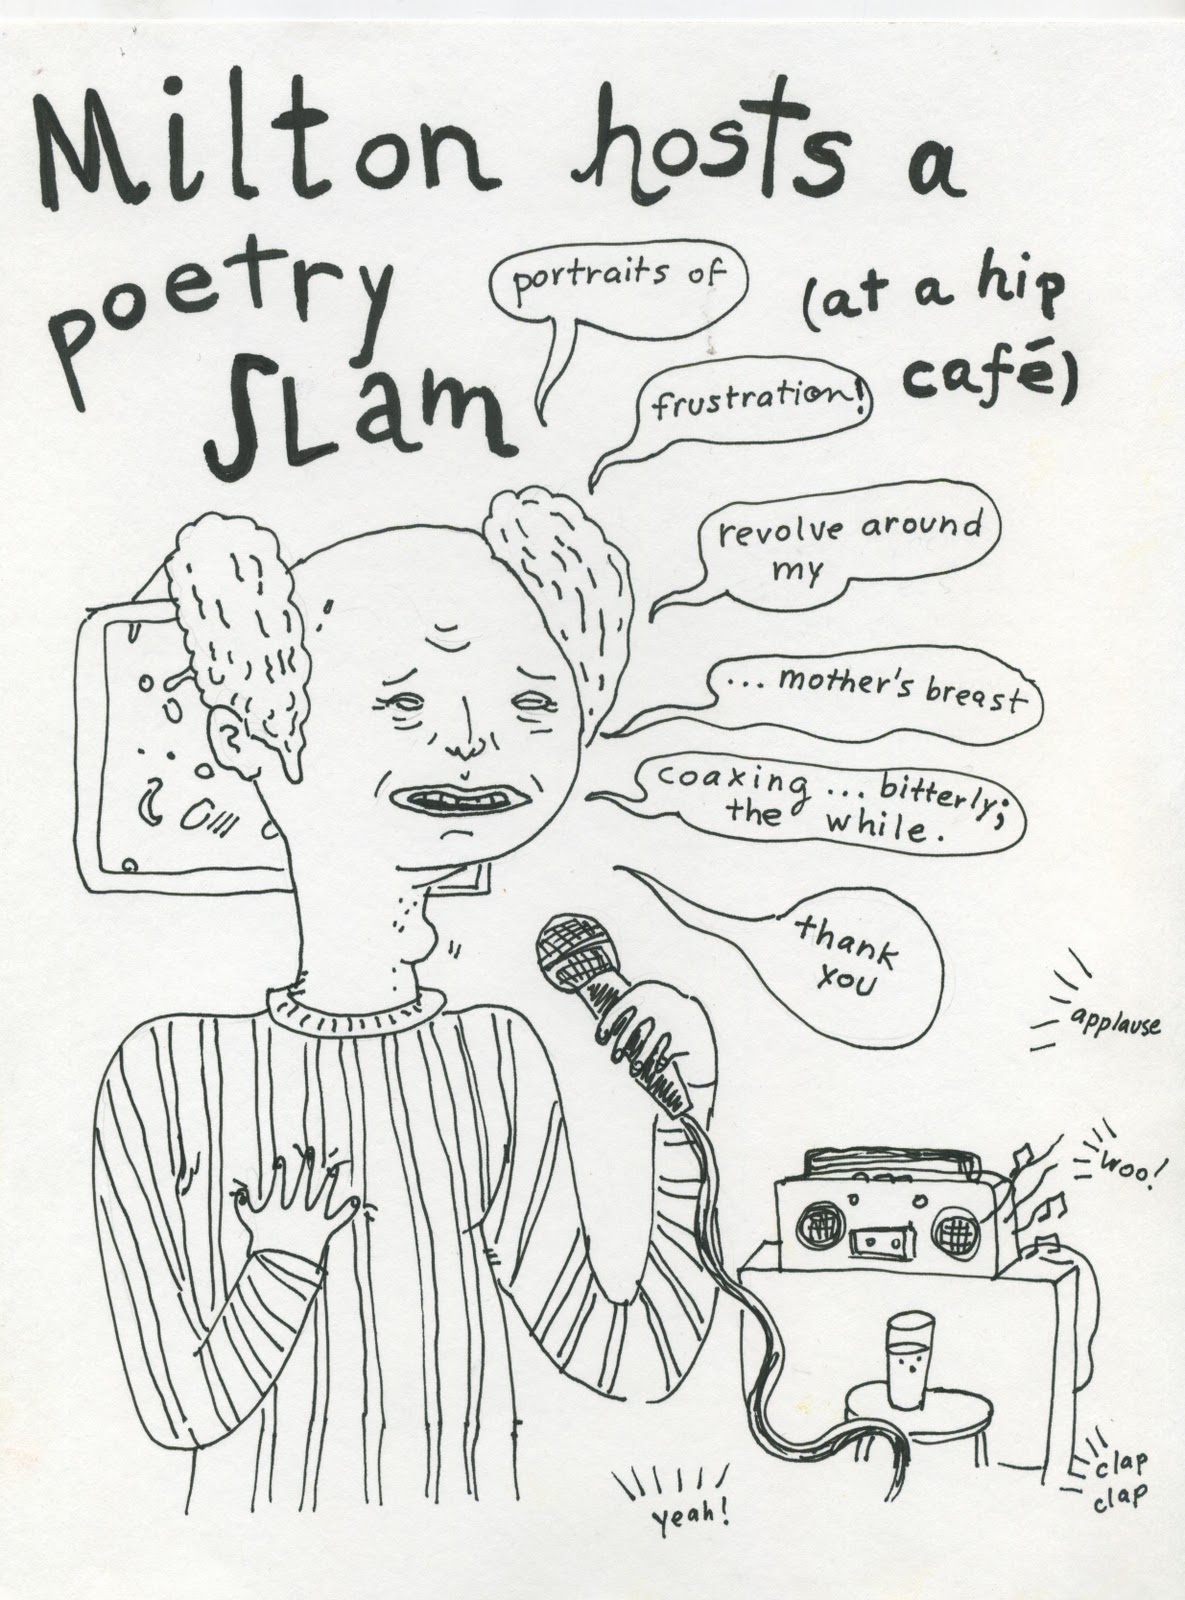 Milton hosts a
poetry
SLam
(at a hip
café)
portraits of
frustration!
revolve around
my
... mother's breast
coaxing ... bitterly;
the while.
thank
you
applause
woo!
clap
clap
yeah!